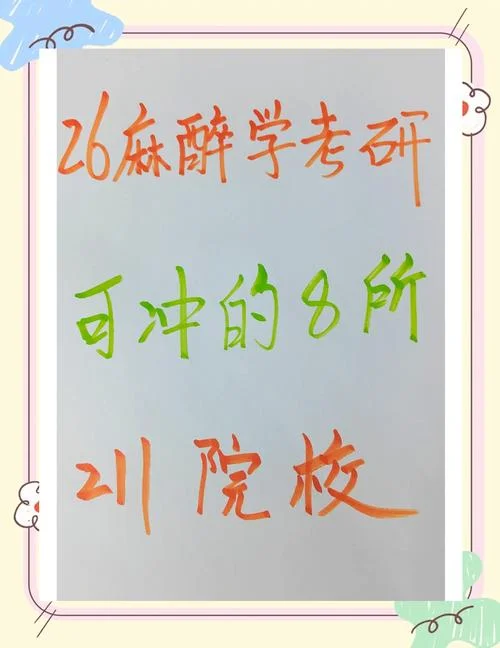 26麻醉学考研
可冲的8所
211院校